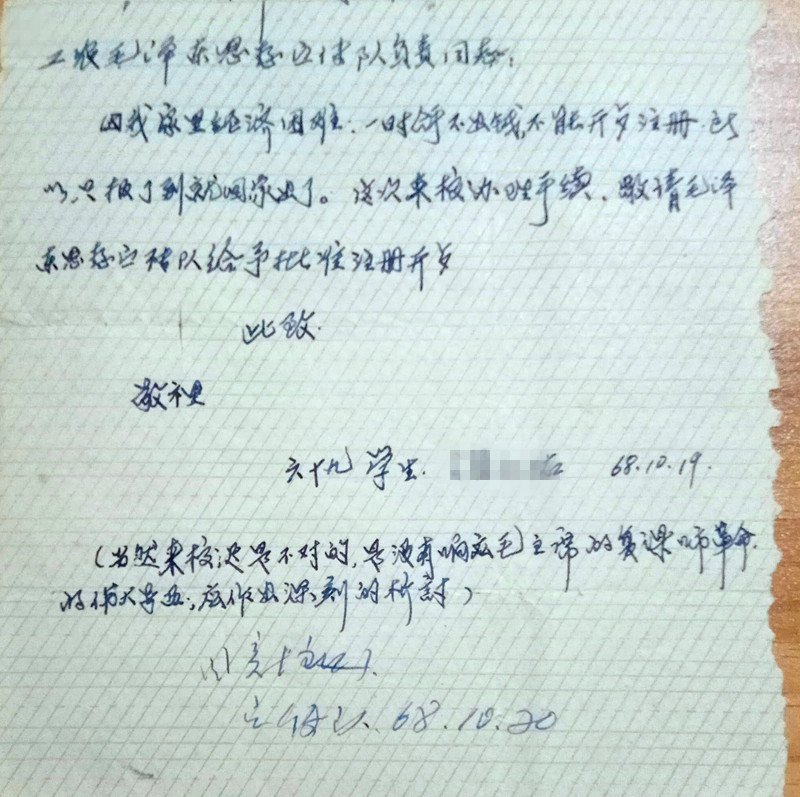 工农毛泽东思想宣传队负责同志:
因我家里经济困难,一时拿不出钱,不能开步注册,所
以,只报了到就回家去了。这次来校办理手续,敬请毛泽
东思想宣传队给予批准注册开步
此致
敬礼
六十九 学生. 68.10.19.
(当然来校迟是不对的,是没有响应毛主席的复课闹革命.
的伟大号召,应作出深刻的检讨)
同意
宣传队 68.10.20